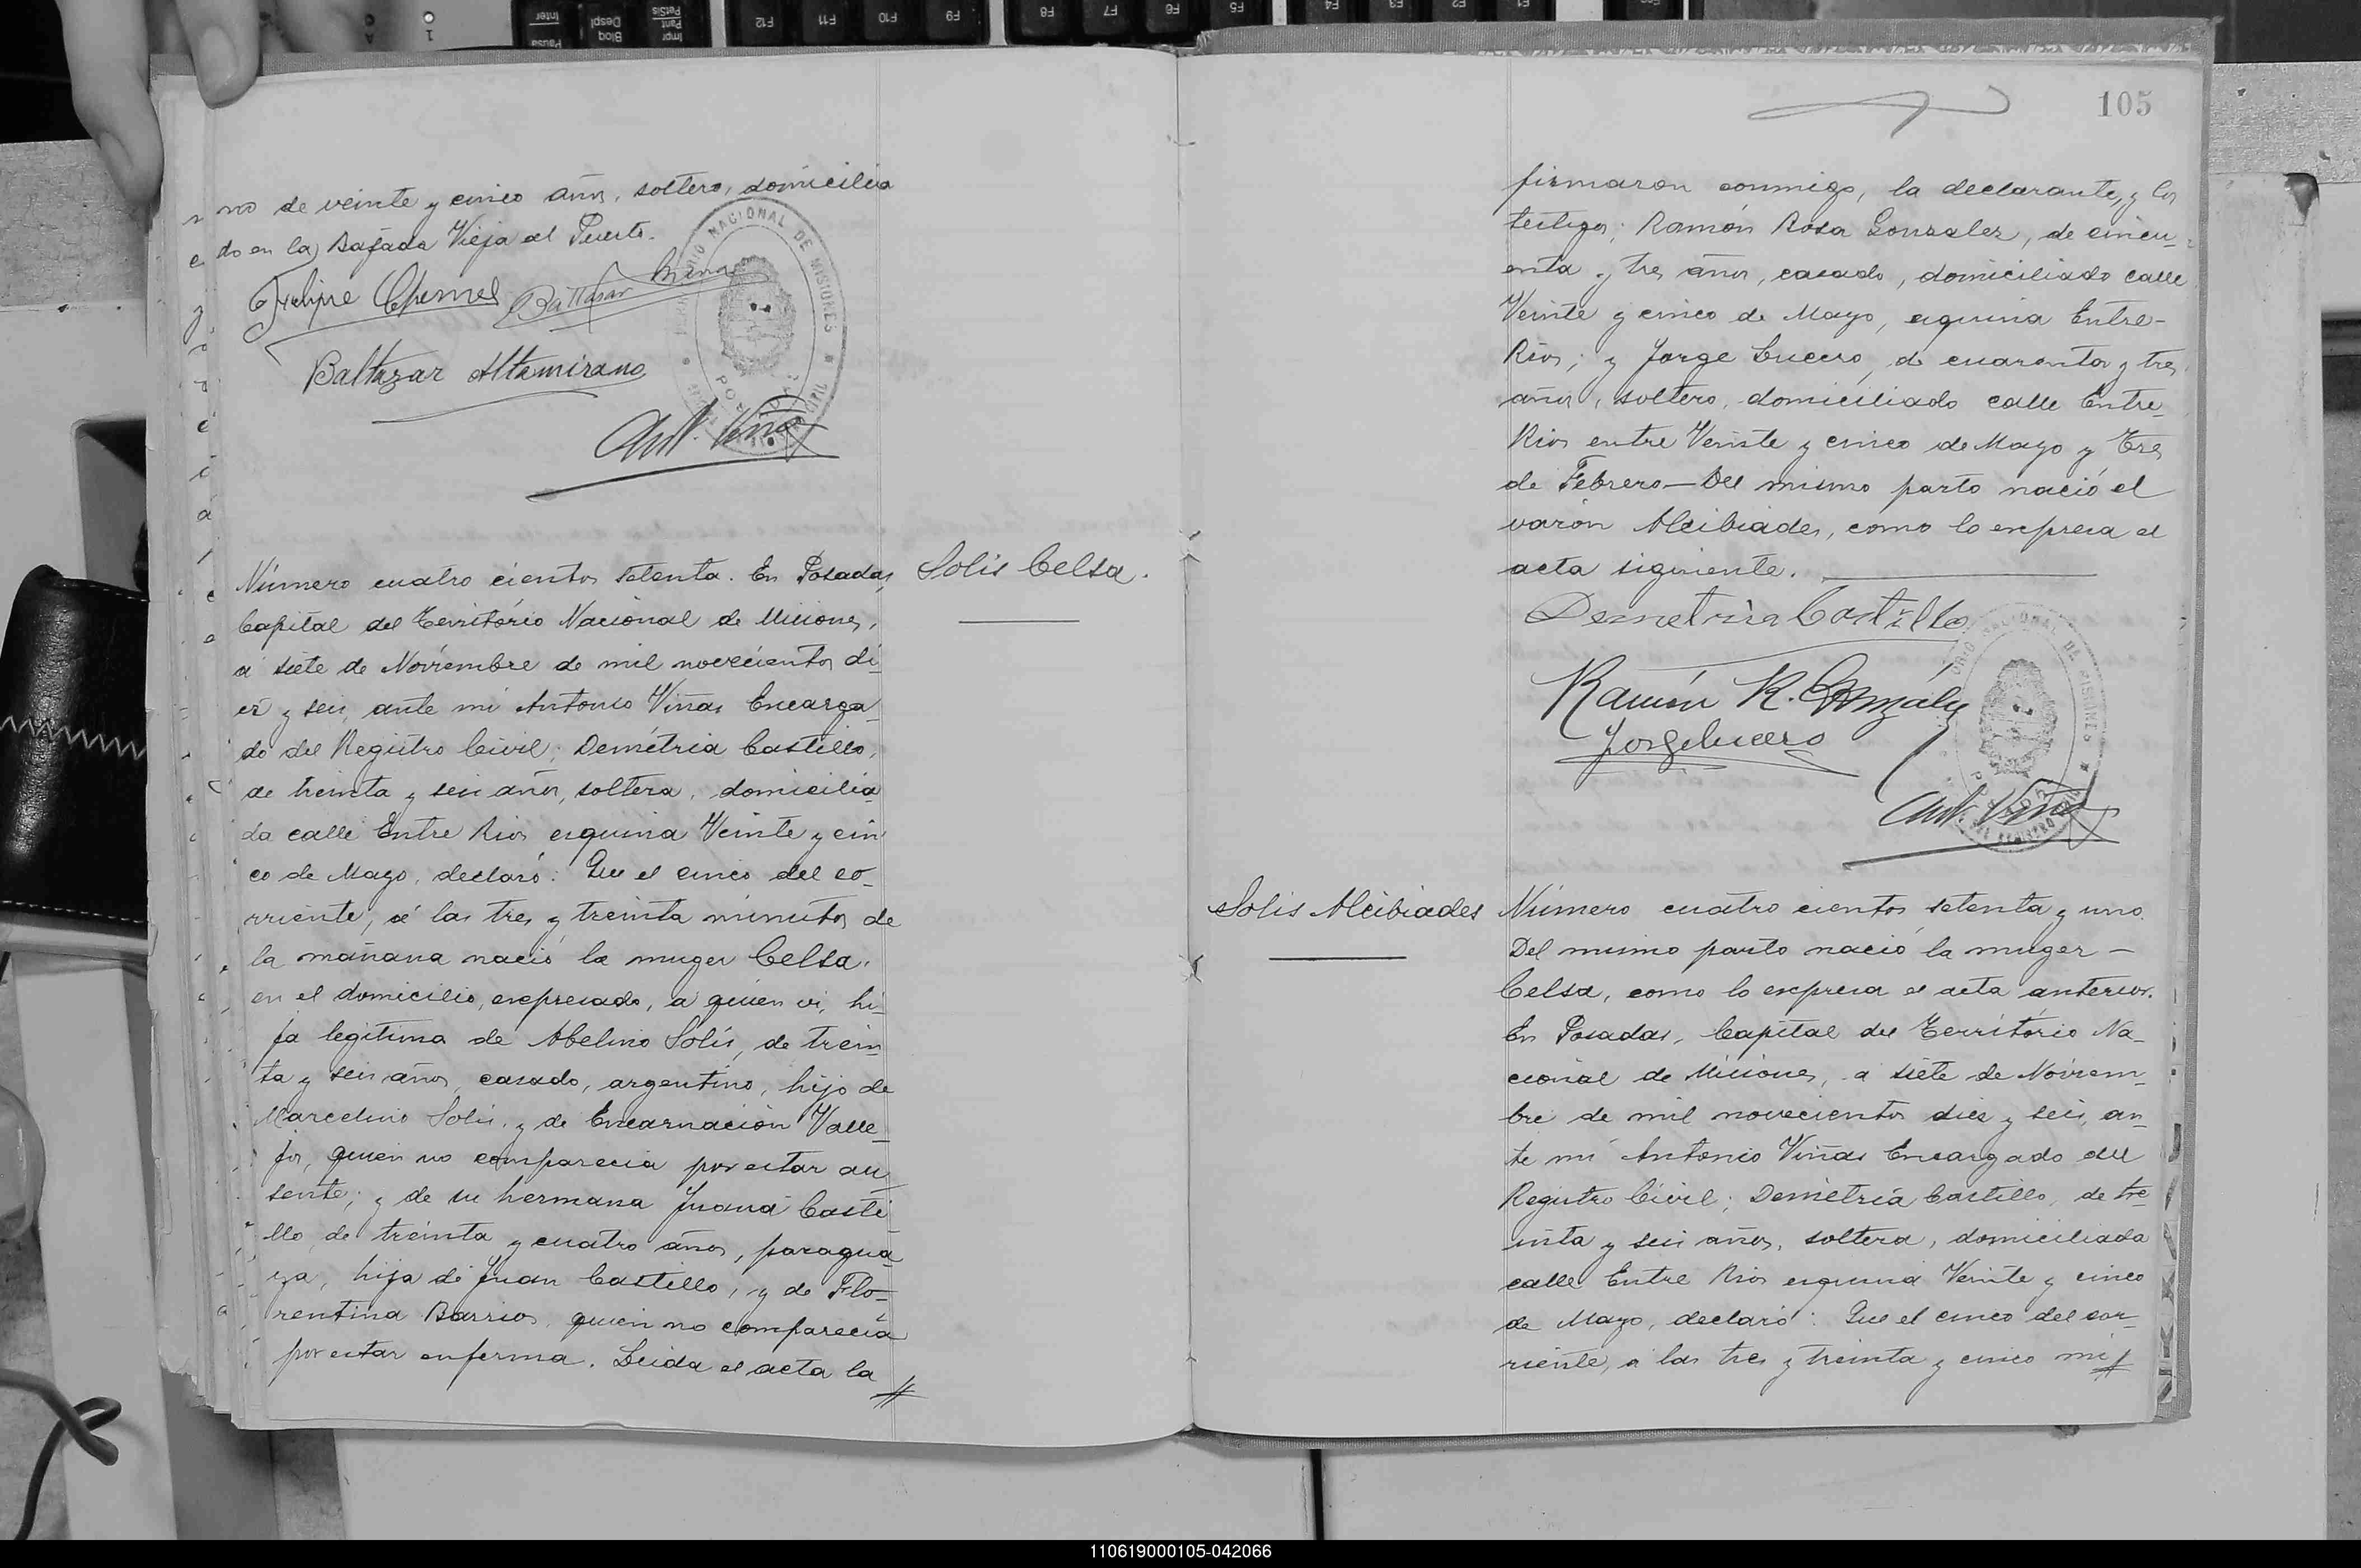 no de veinte y cinco años, soltero, domicilia
do en la Bajada Vieja al Puerto.
Felipe Chemel Baltasar Mena
Baltazar Altamirano
Ant. Viñas
Solis Celsa.
Número cuatro cientos setenta. En Posadas,
Capital del Território Nacional de Misiones,
a siete de Noviembre de mil novecientos di
ez y seis, ante mi Antonio Viñas Encarga
do del Registro Civil; Demétria Castillo,
de treinta y seis años, soltera, domicilia
da calle Entre Rios esquina Veinte y cin
co de Mayo, declaró: Que el cinco del co_
rriente, á las tres y treinta minutos de
la mañana nació la muger Celsa,
en el domicilio, expresado, a quien vi, hi_
ja legitima de Abelino Solís, de trein
ta y seis años, casado, argentino, hijo de
Marcelino Solis, y de Encarnación Valle_
jos, quien no comparecia por estar au
sente; y de su hermana Juana Casti
llo, de treinta y cuatro años, paragua
ya, hija de Juan Castillo, y de Flo=
rentina Barrios, quien no comparecia
por estar enferma. Leida el acta la
105
firmaron conmigo, la declarante, y los
testigos; Ramón Rosa Gonzalez, de cincu_
enta y tres años, casado, domiciliado calle
Veinte y cinco de Mayo, esquina Entre-
Rios; y Jorge Lucero, de cuarenta y tres
años, soltero, domiciliado calle Entre_
Rios entre Veinte y cinco de Mayo y Tres
de Febrero—Del mismo parto nació el
varón Alcibiades, como lo expresa el
acta siguiente.
Demetria Castillo
Ramón R. González
Jorge Lucero
Ant. Viñas
Solis Alcibiades
Número cuatro cientos setenta y uno.
Del mismo parto nació la muger –
Celsa, como lo expresa el acta anterior.
En Posadas, Capital del Território Na_
cional de Misiones, a siete de Noviem_
bre de mil novecientos diez y seis, an_
te mi Antonio Viñas Encargado del
Registro Civil; Demetria Castillo, de tre_
inta y seis años, soltera, domiciliada
calle Entre Rios esquina Veinte y cinco
de Mayo, declaró: Que el cinco del cor_
riente, a las tres y treinta y cinco mi
110619000105-042066